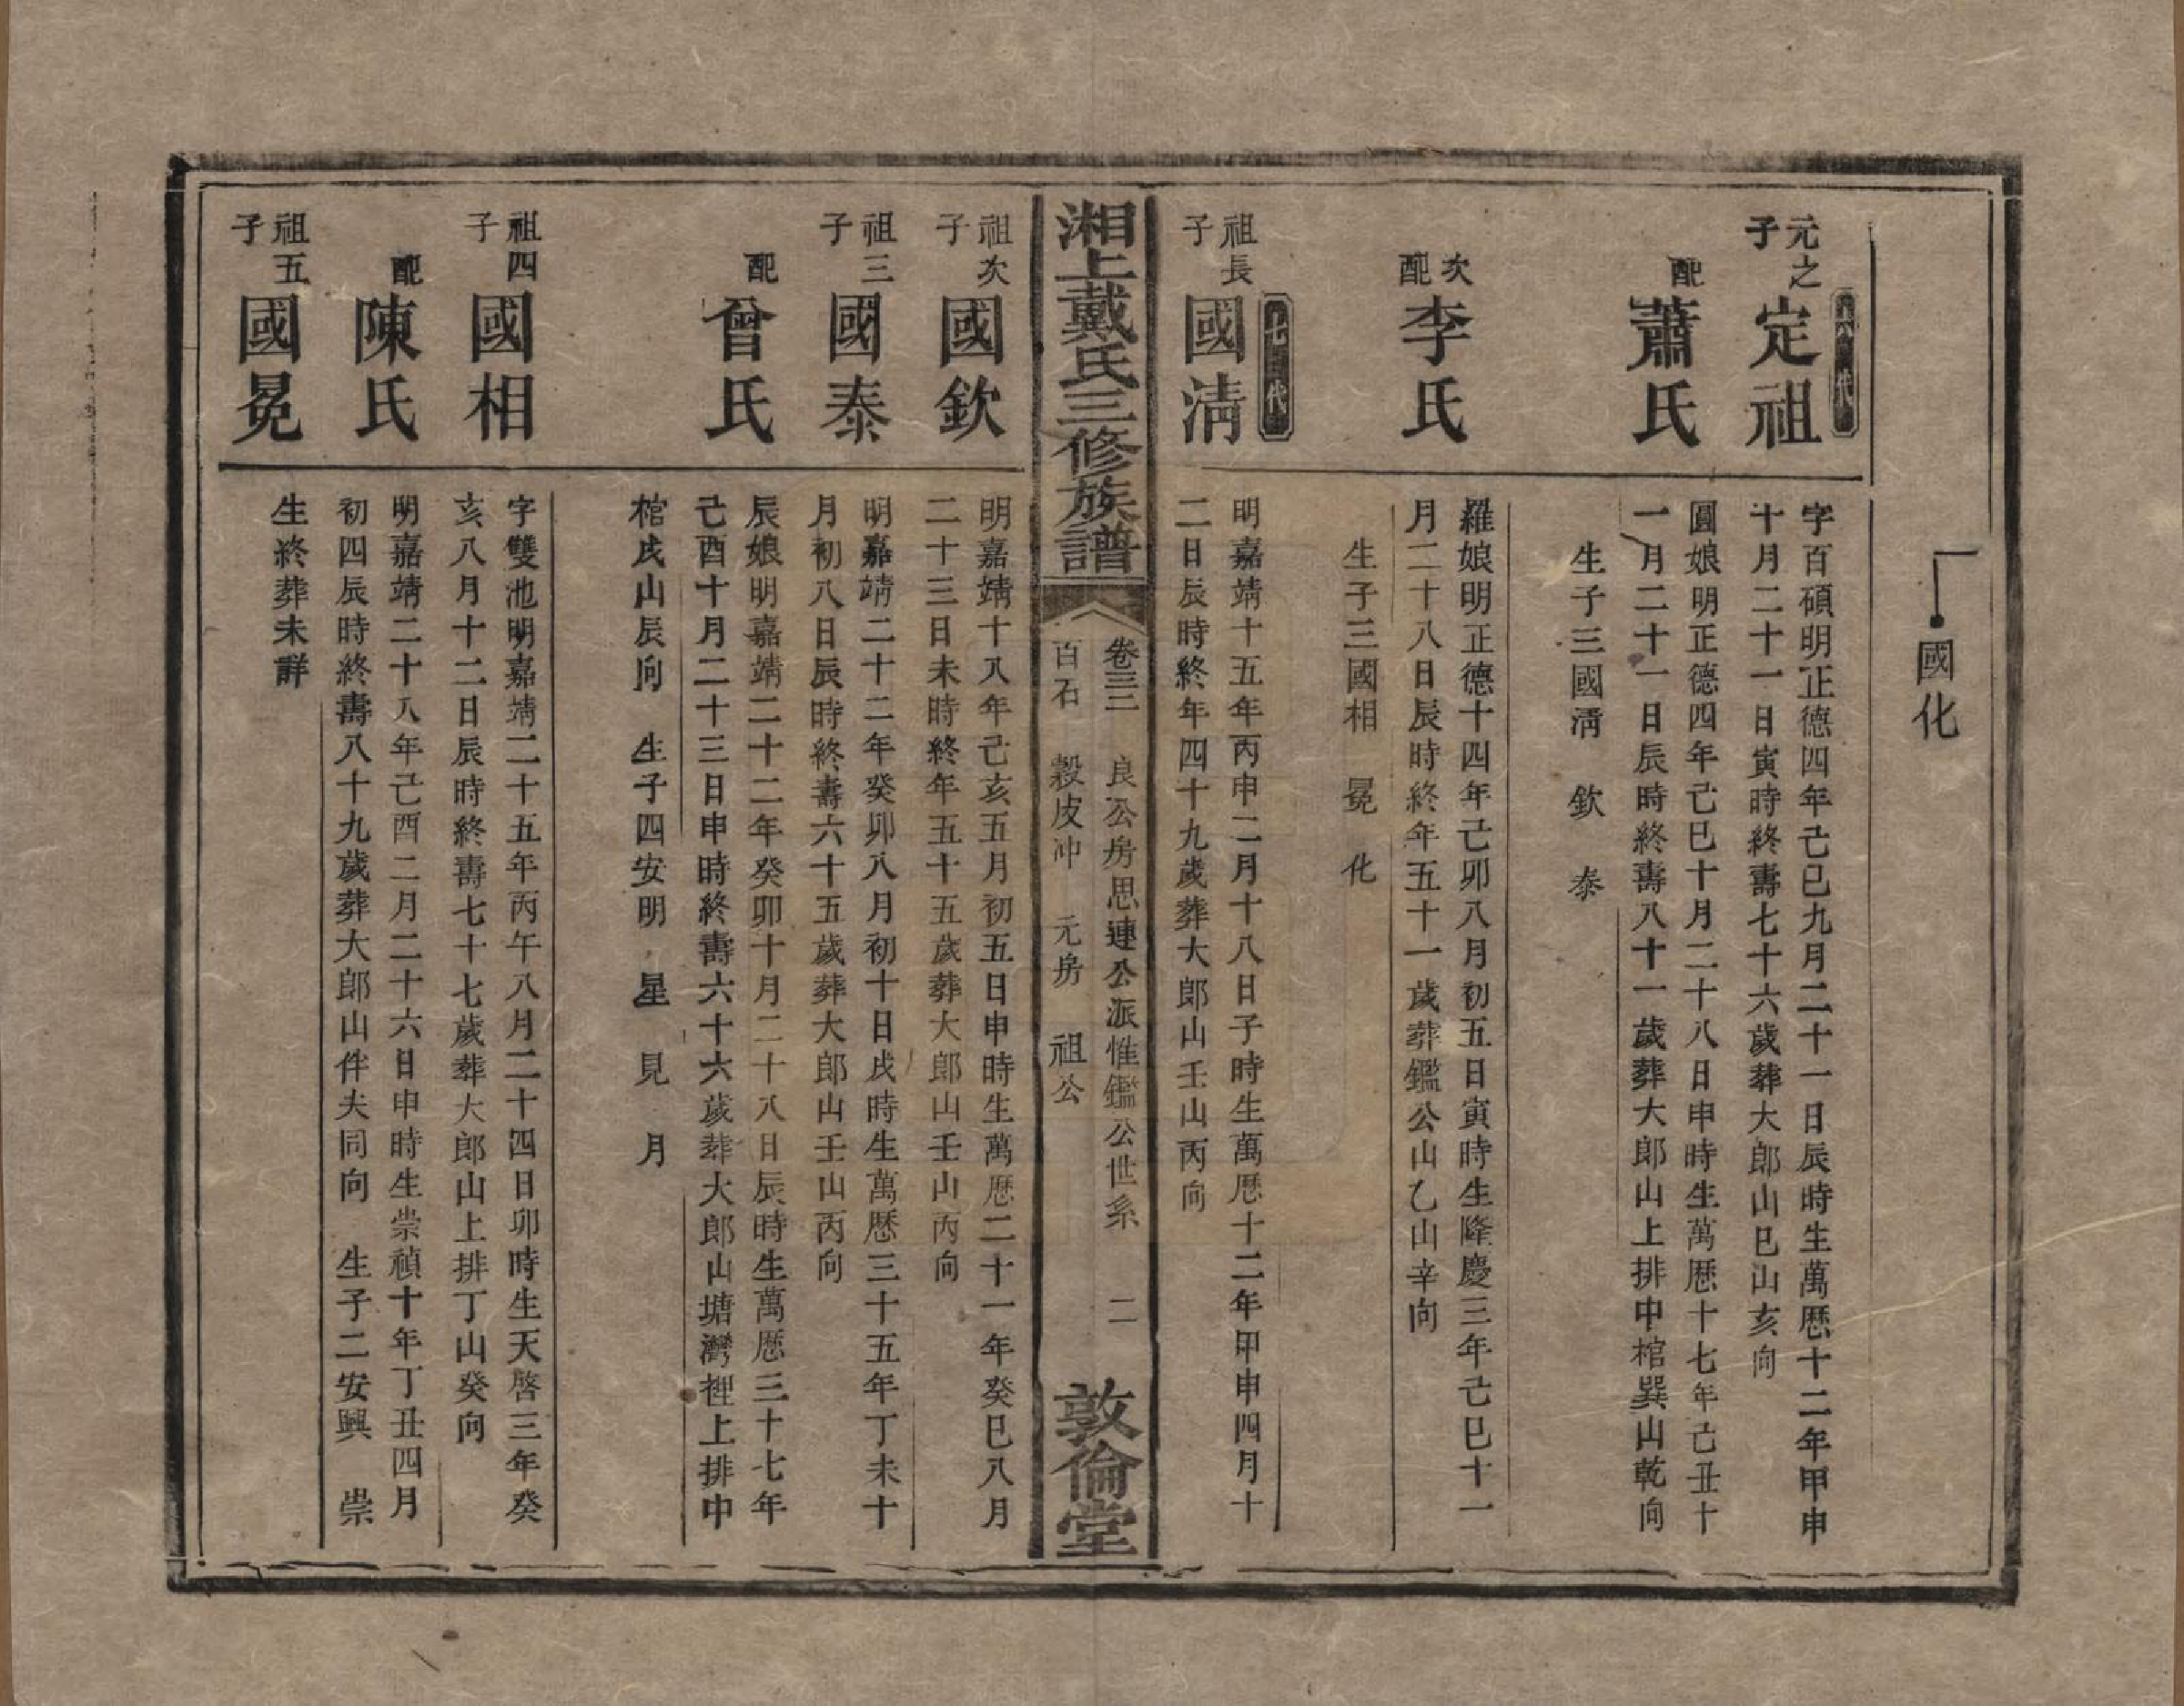 國化
六代
元之子
定祖
字百碩明正德四年己巳九月二十一日辰時生萬歷十二年甲申
十月二十一日寅時終壽七十六歲葬大郎山巳山亥向
配
蕭氏
圓娘明正德四年己巳十月二十八日申時生萬歷十七年己丑十
一月二十一日辰時終壽八十一歲葬大郎山上排中棺巽山乾向
生子三國清 欽 泰
次配
李氏
羅娘明正德十四年己卯八月初五日寅時生隆慶三年己巳十一
月二十八日辰時終年五十一歲葬鑑公山乙山辛向
生子三國相 冕 化
七代
祖長子
國清
明嘉靖十五年丙申二月十八日子時生萬歷十二年甲申四月十
二日辰時終年四十九歲葬大郎山壬山丙向
湘上戴氏三修族譜
卷三三 良公房思連公派惟鑑公世系 二
百石 穀皮冲 元房 祖公
敦倫堂
祖次子
國欽
明嘉靖十八年己亥五月初五日申時生萬歷二十一年癸巳八月
二十三日未時終年五十五歲葬大郎山壬山丙向
祖三子
國泰
明嘉靖二十二年癸卯八月初十日戌時生萬歷三十五年丁未十
月初八日辰時終壽六十五歲葬大郎山壬山丙向
配
曾氏
辰娘明嘉靖二十二年癸卯十月二十八日辰時生萬歷三十七年
己酉十月二十三日申時終壽六十六歲葬大郎山塘灣裡上排中
棺戌山辰向 生子四安明 星 見 月
祖四子
國相
字雙池明嘉靖二十五年丙午八月二十四日卯時生天啓三年癸
亥八月十二日辰時終壽七十七歲葬大郎山上排丁山癸向
配
陳氏
明嘉靖二十八年己酉二月二十六日申時生崇禎十年丁丑四月
初四辰時終壽八十九歲葬大郎山伴夫同向 生子二安興 崇
祖五子
國冕
生終葬未詳